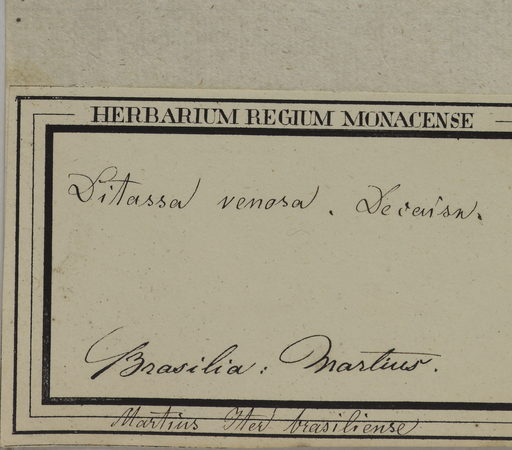 HERBARIUM REGIUM MONACENSE
Ditassa venosa. Decaisn.
Brasilia: Martius.
Martius Iter brasiliense